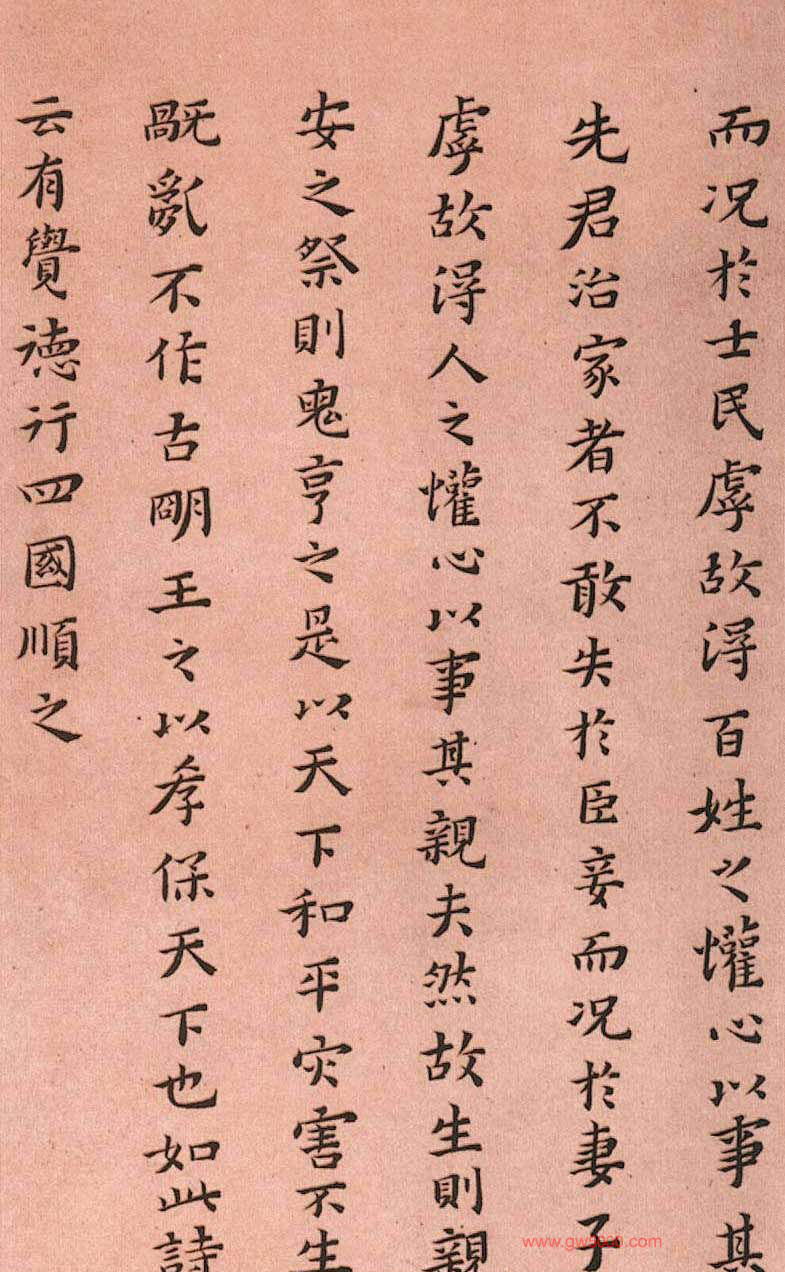 而况於士民虖故淂百姓之懽心以事其
先君治家者不敢失於臣妾而况於妻子
虖故淂人之懽心以事其親夫然故生則親
安之祭則鬼亨之是以天下和平灾害不生
旤亂不作古朙王之以孝保天下也如此詩
云有覺徳行四國順之